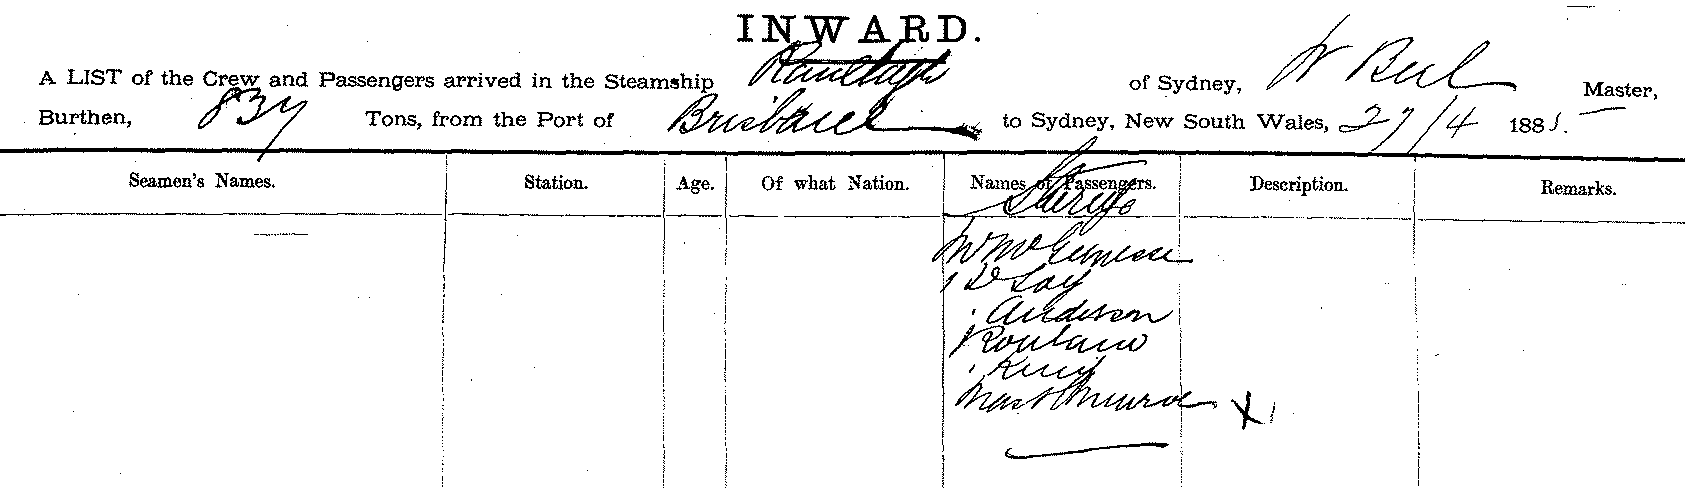 INWARD.
A LIST of the Crew and Passengers arrived in the Steamship Ranelagh of Sydney, W Beel Master,
Burthen, 837 Tons, from the Port of Brisbane to Sydney, New South Wales, 27/4 188
Seamen's Names. Station. Age. Of what Nation. Names of Passengers. Description. Remarks.
Mr
Loy
Anderson
Rowland
King
Mast Munroe X